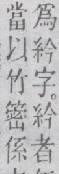 爲紟字。紟者
當以竹係